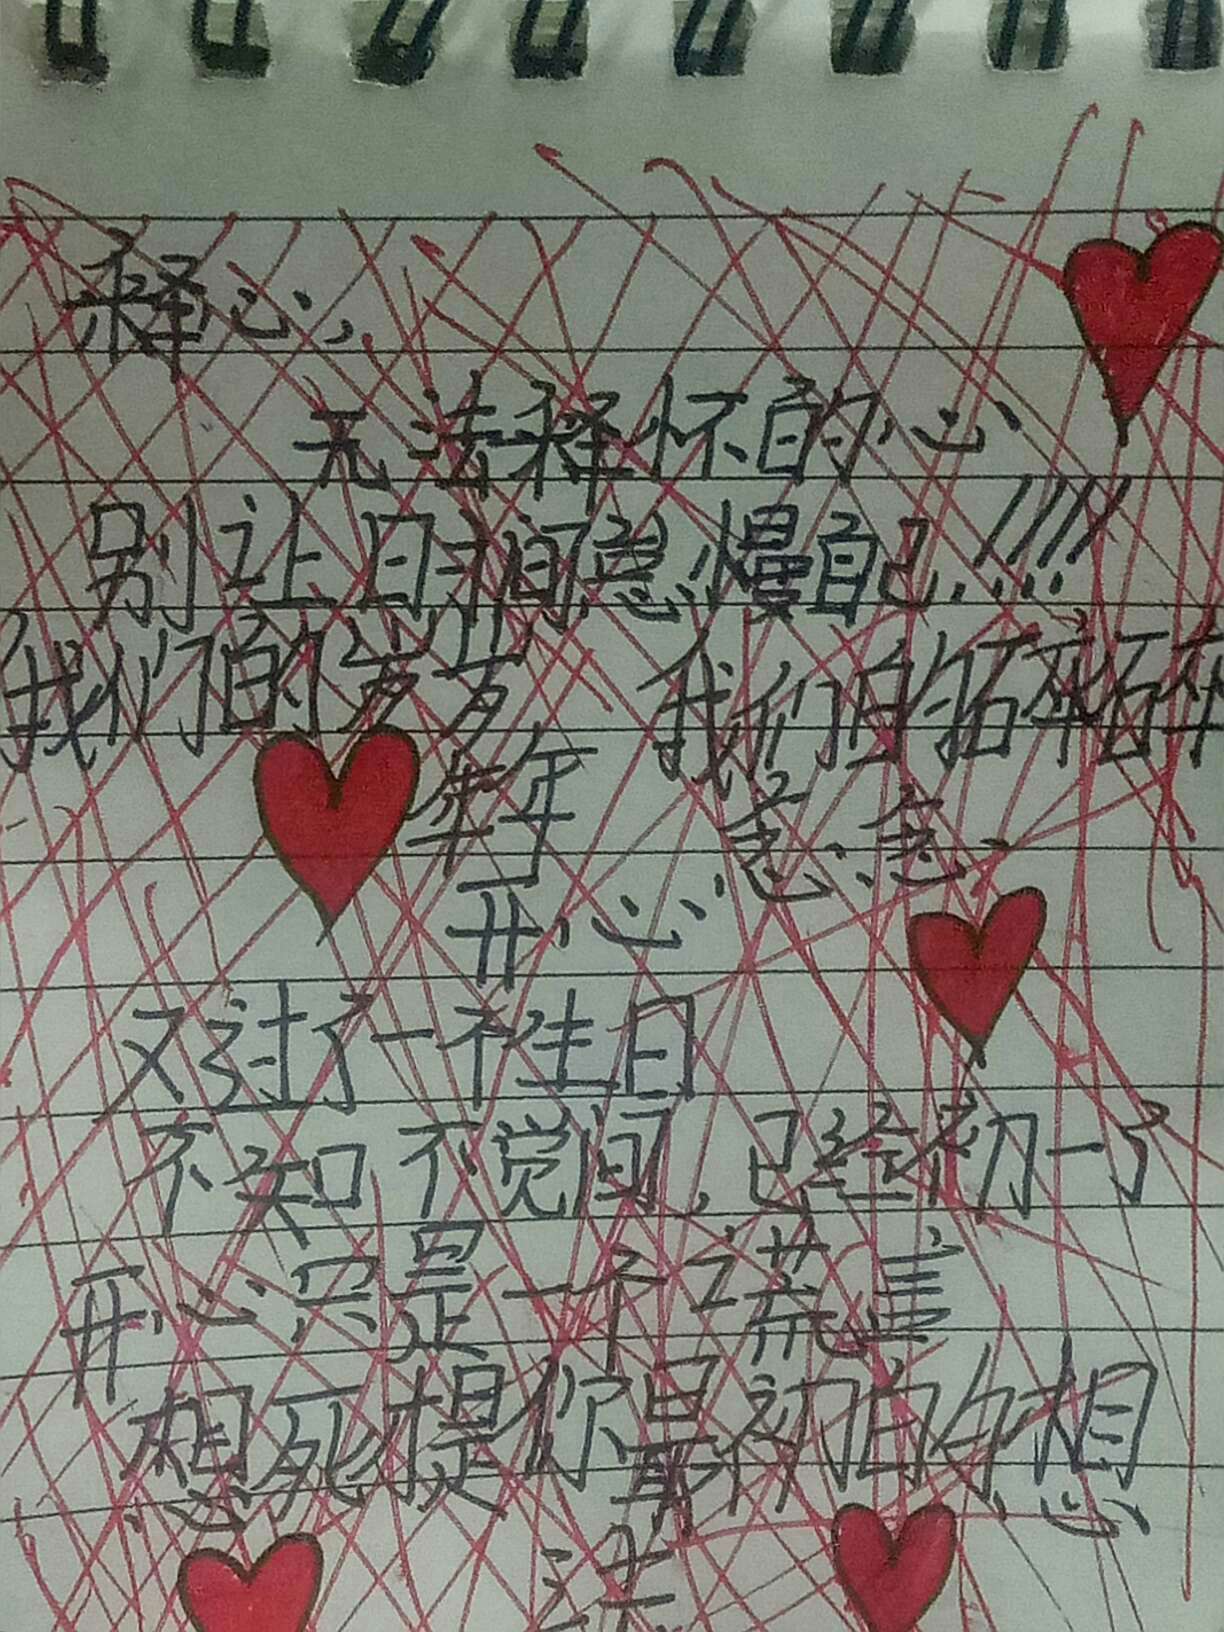 释心,
无法释怀的心
别让时间怠慢自己.!!!!
我们的岁岁 我们的碎碎
年年 念念
开心
又过了一个生日
不知不觉间,已经初一了
开心只是一个谎言
想死提你最初的想
法